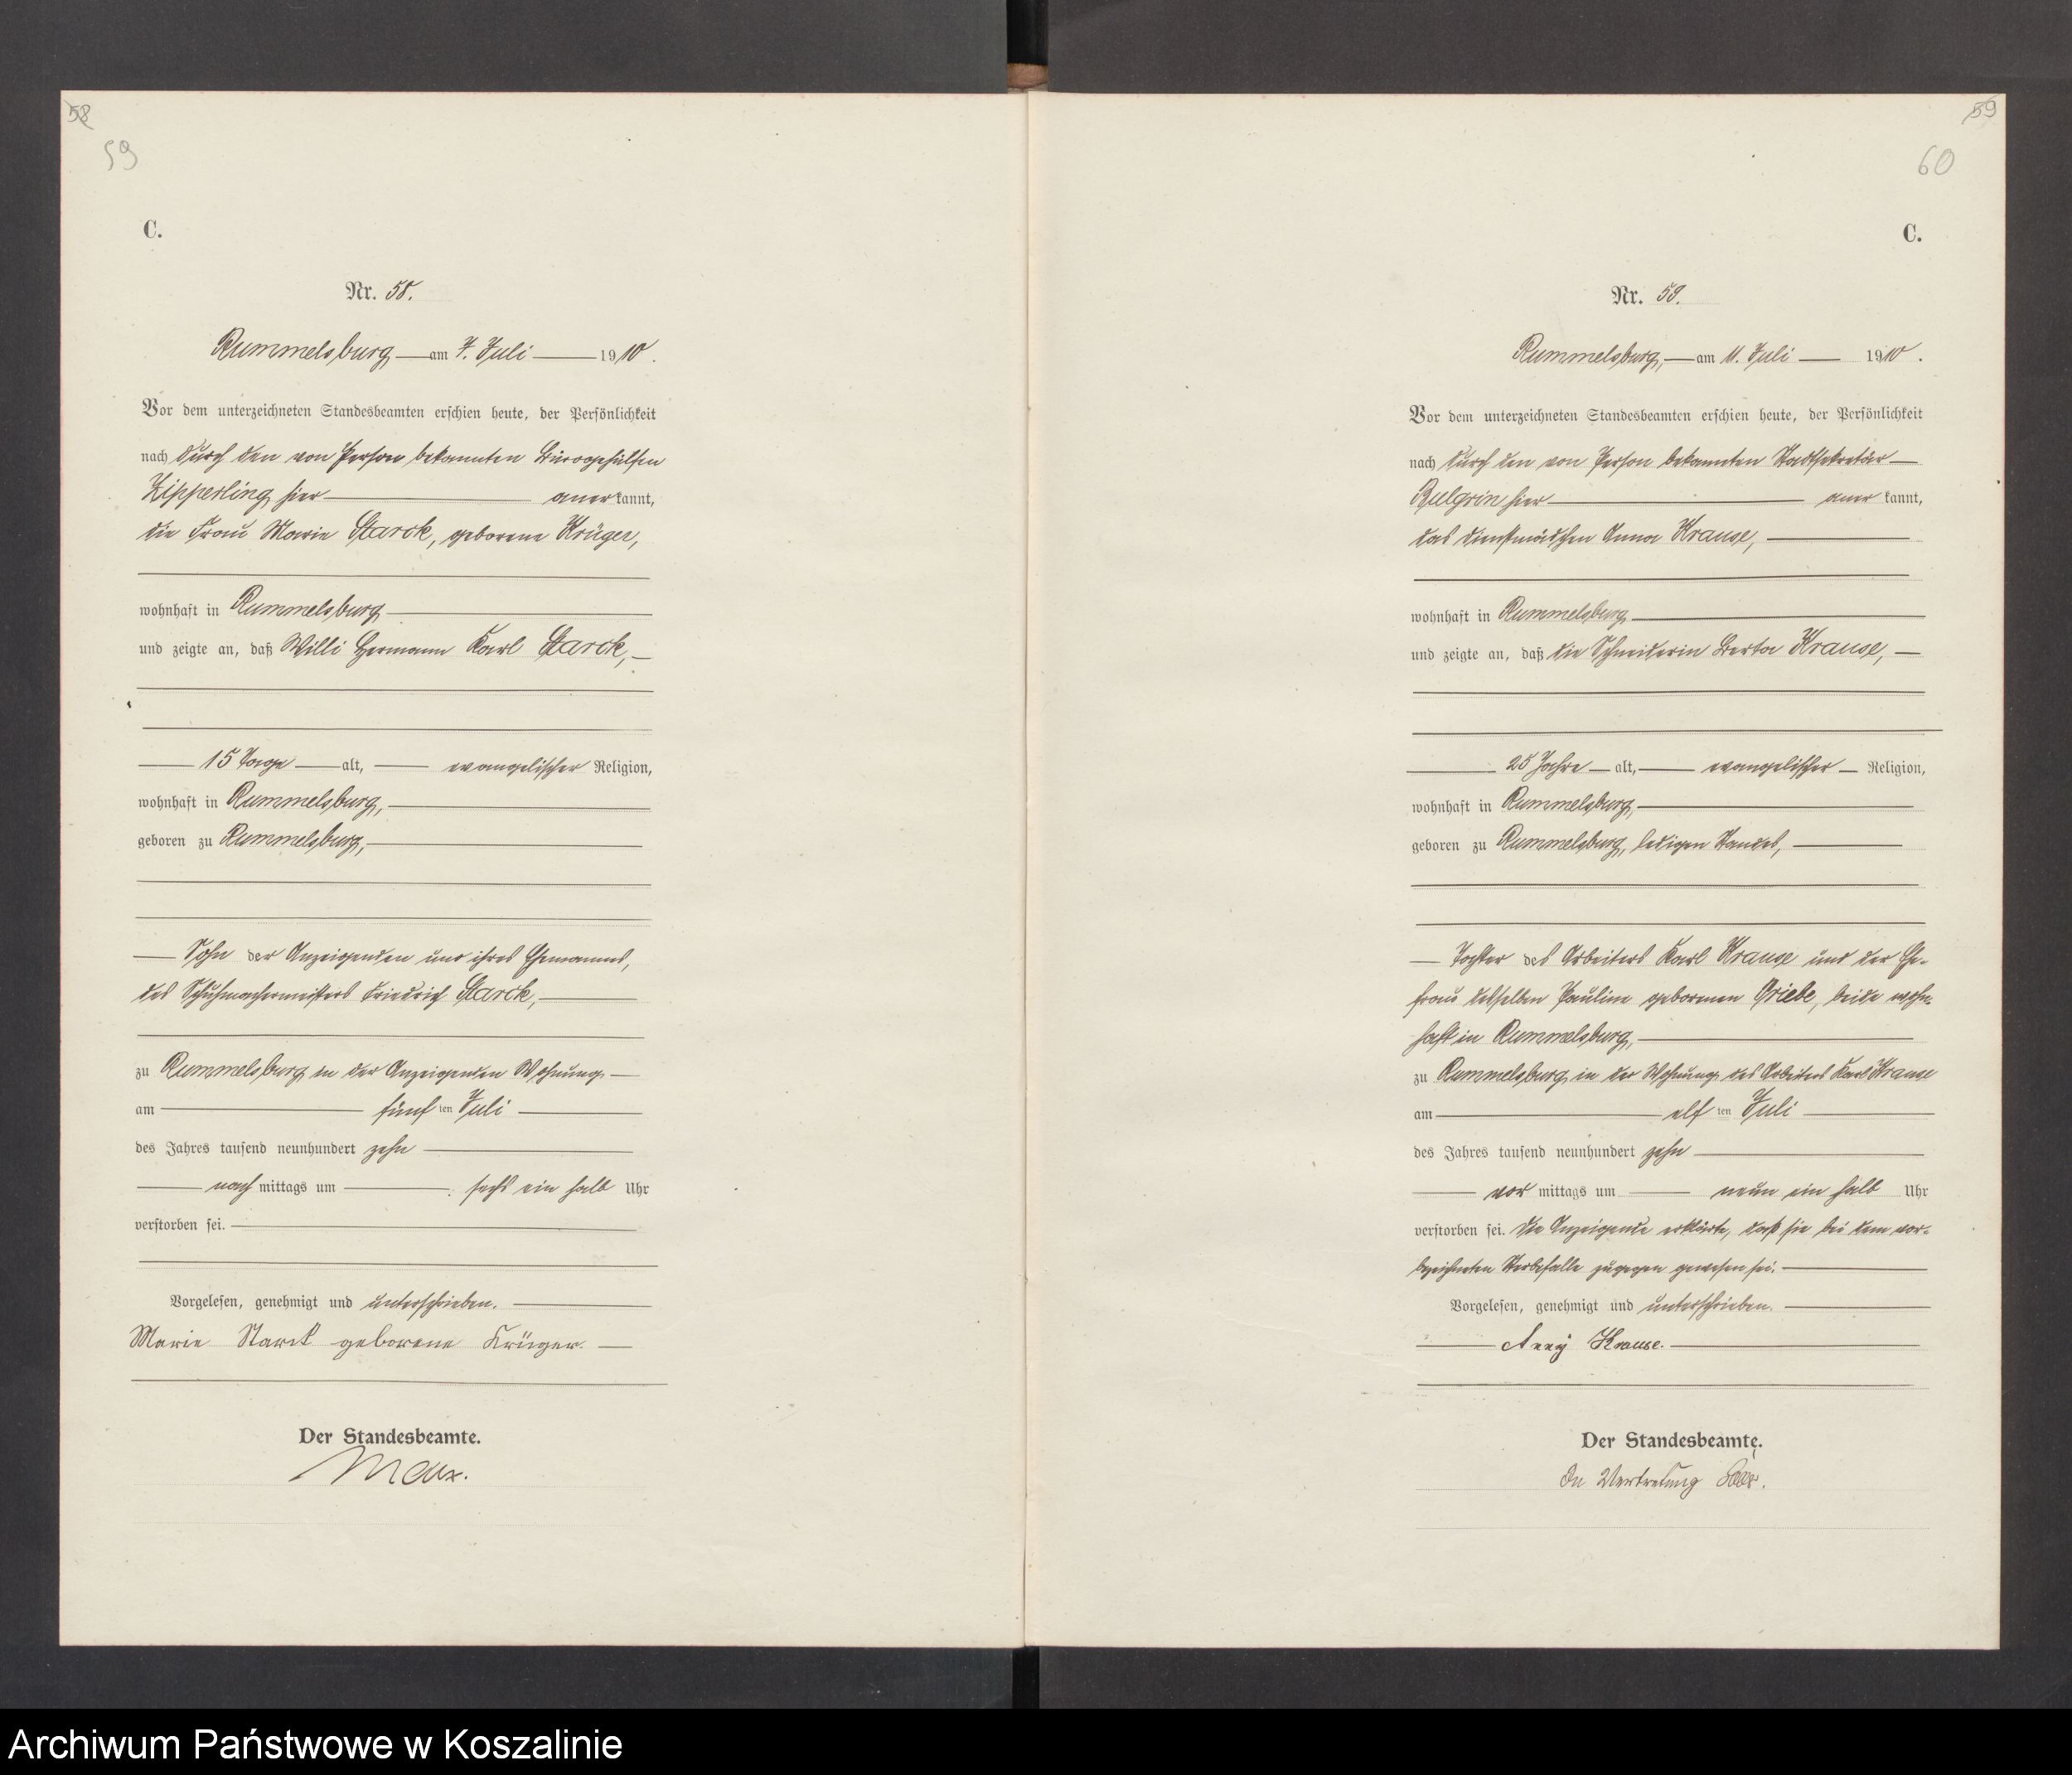 58
59
C.
Nr. 58.
Rummelsburg am 7. Juli 1910.
Vor dem unterzeichneten Standesbeamten erschien heute, der Persönlichkeit
nach durch den von Person bekannten Bürogehülfen
Zipperling hier anerkannt,
die Frau Marie Starck, geborene Krüger,
wohnhaft in Rummelsburg
und zeigte an, daß Willi Hermann Karl Starck,
15 Tage alt, evangelischer Religion,
wohnhaft in Rummelsburg,
geboren zu Rummelsburg,
Sohn der Anzeigenden und ihres Ehemannes,
des Schuhmachermeisters Friedrich Starck,
zu Rummelsburg in der Anzeigenden Wohnung
am fünften Juli
des Jahres tausend neunhundert zehn
nachmittags um sechs ein halb Uhr
verstorben sei.
Vorgelesen, genehmigt und unterschrieben.
Marie Starck geborene Krüger.
Der Standesbeamte.
59
60
C.
Nr. 59.
Rummelsburg, am 11. Juli 1910.
Vor dem unterzeichneten Standesbeamten erschien heute, der Persönlichkeit
nach durch den von Person bekannten Stadtsekretär
Bulgrin hier anerkannt,
das Dienstmädchen Anna Krause,
wohnhaft in Rummelsburg
und zeigte an, daß die Schneiderin Berta Krause,
25 Jahre alt, evangelischer Religion,
wohnhaft in Rummelsburg,
geboren zu Rummelsburg, ledigen Standes,
Tochter des Arbeiters Karl Krause und der Ehe-
frau desselben Pauline geborenen Griebe, beide wohn-
haft in Rummelsburg,
zu Rummelsburg in der Wohnung des Arbeiters Karl Krause
am elften Juli
des Jahres tausend neunhundert zehn
vormittags um neun ein halb Uhr
verstorben sei. Die Anzeigende erklärte, daß sie bei dem vor-
bezeichneten Sterbefalle zugegen gewesen sei.
Vorgelesen, genehmigt und unterschrieben.
Krause.
Der Standesbeamte.
In Vertretung
Archiwum Państwowe w Koszalinie